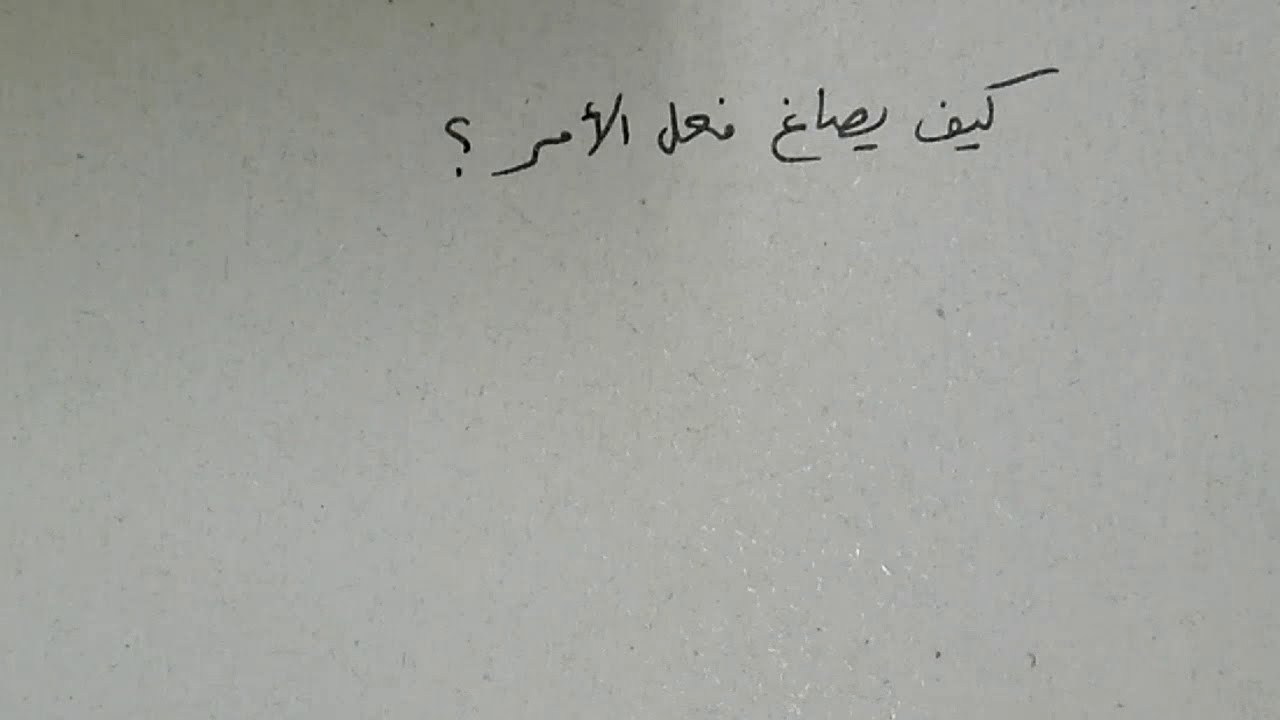 كيف يصاغ فعل الأمر ؟